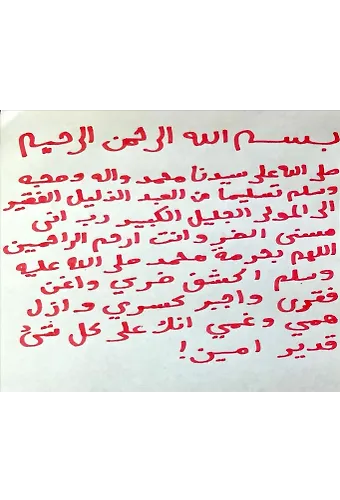 بسم الله الرحمن الرحيم
صلى الله على سيدنا محمد واله وصحبه
وسلم تسليما من العبد الذليل الفقير
الى المولى الجليل الكبير رب انى
مسنى الضر وانت ارحم الراحمين
اللهم بحرمة محمد صلى الله عليه
وسلم اكشف ضري واغن
فقرى واجبر كسري وازل
همي وغمي انك على كل شئ
قدير امين!